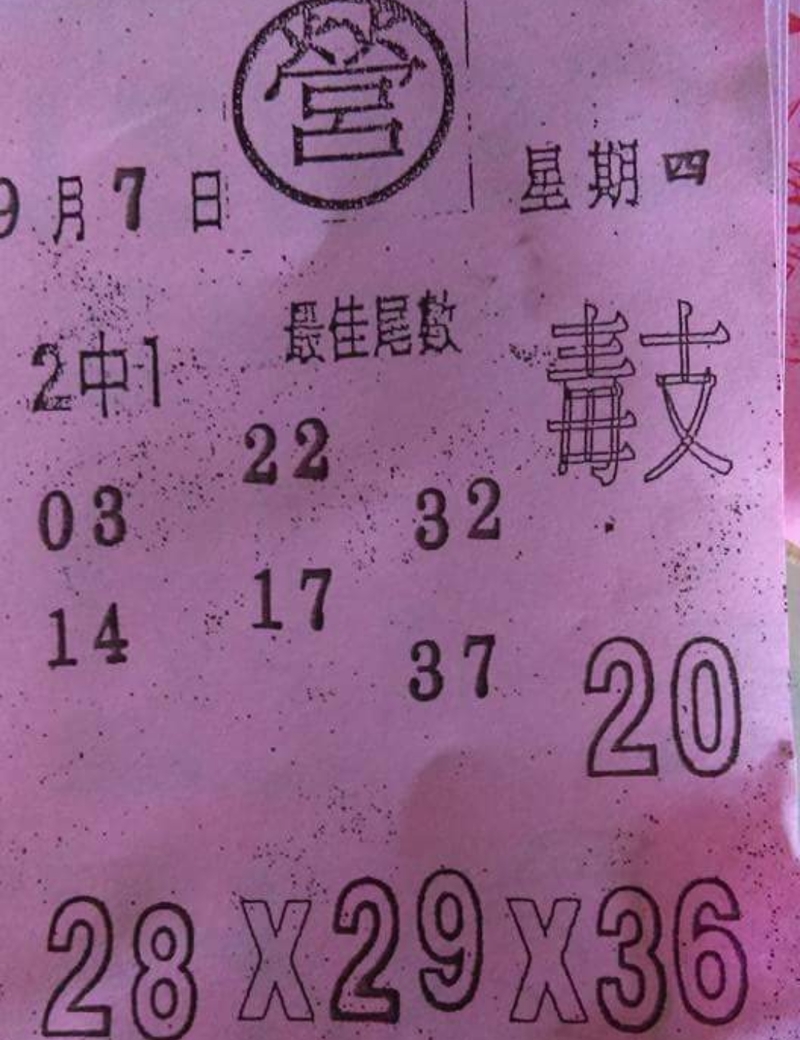 營
9月7日 星期四
2中1 最佳尾數 毒支
22
03 32
14 17
37 20
28X29X36